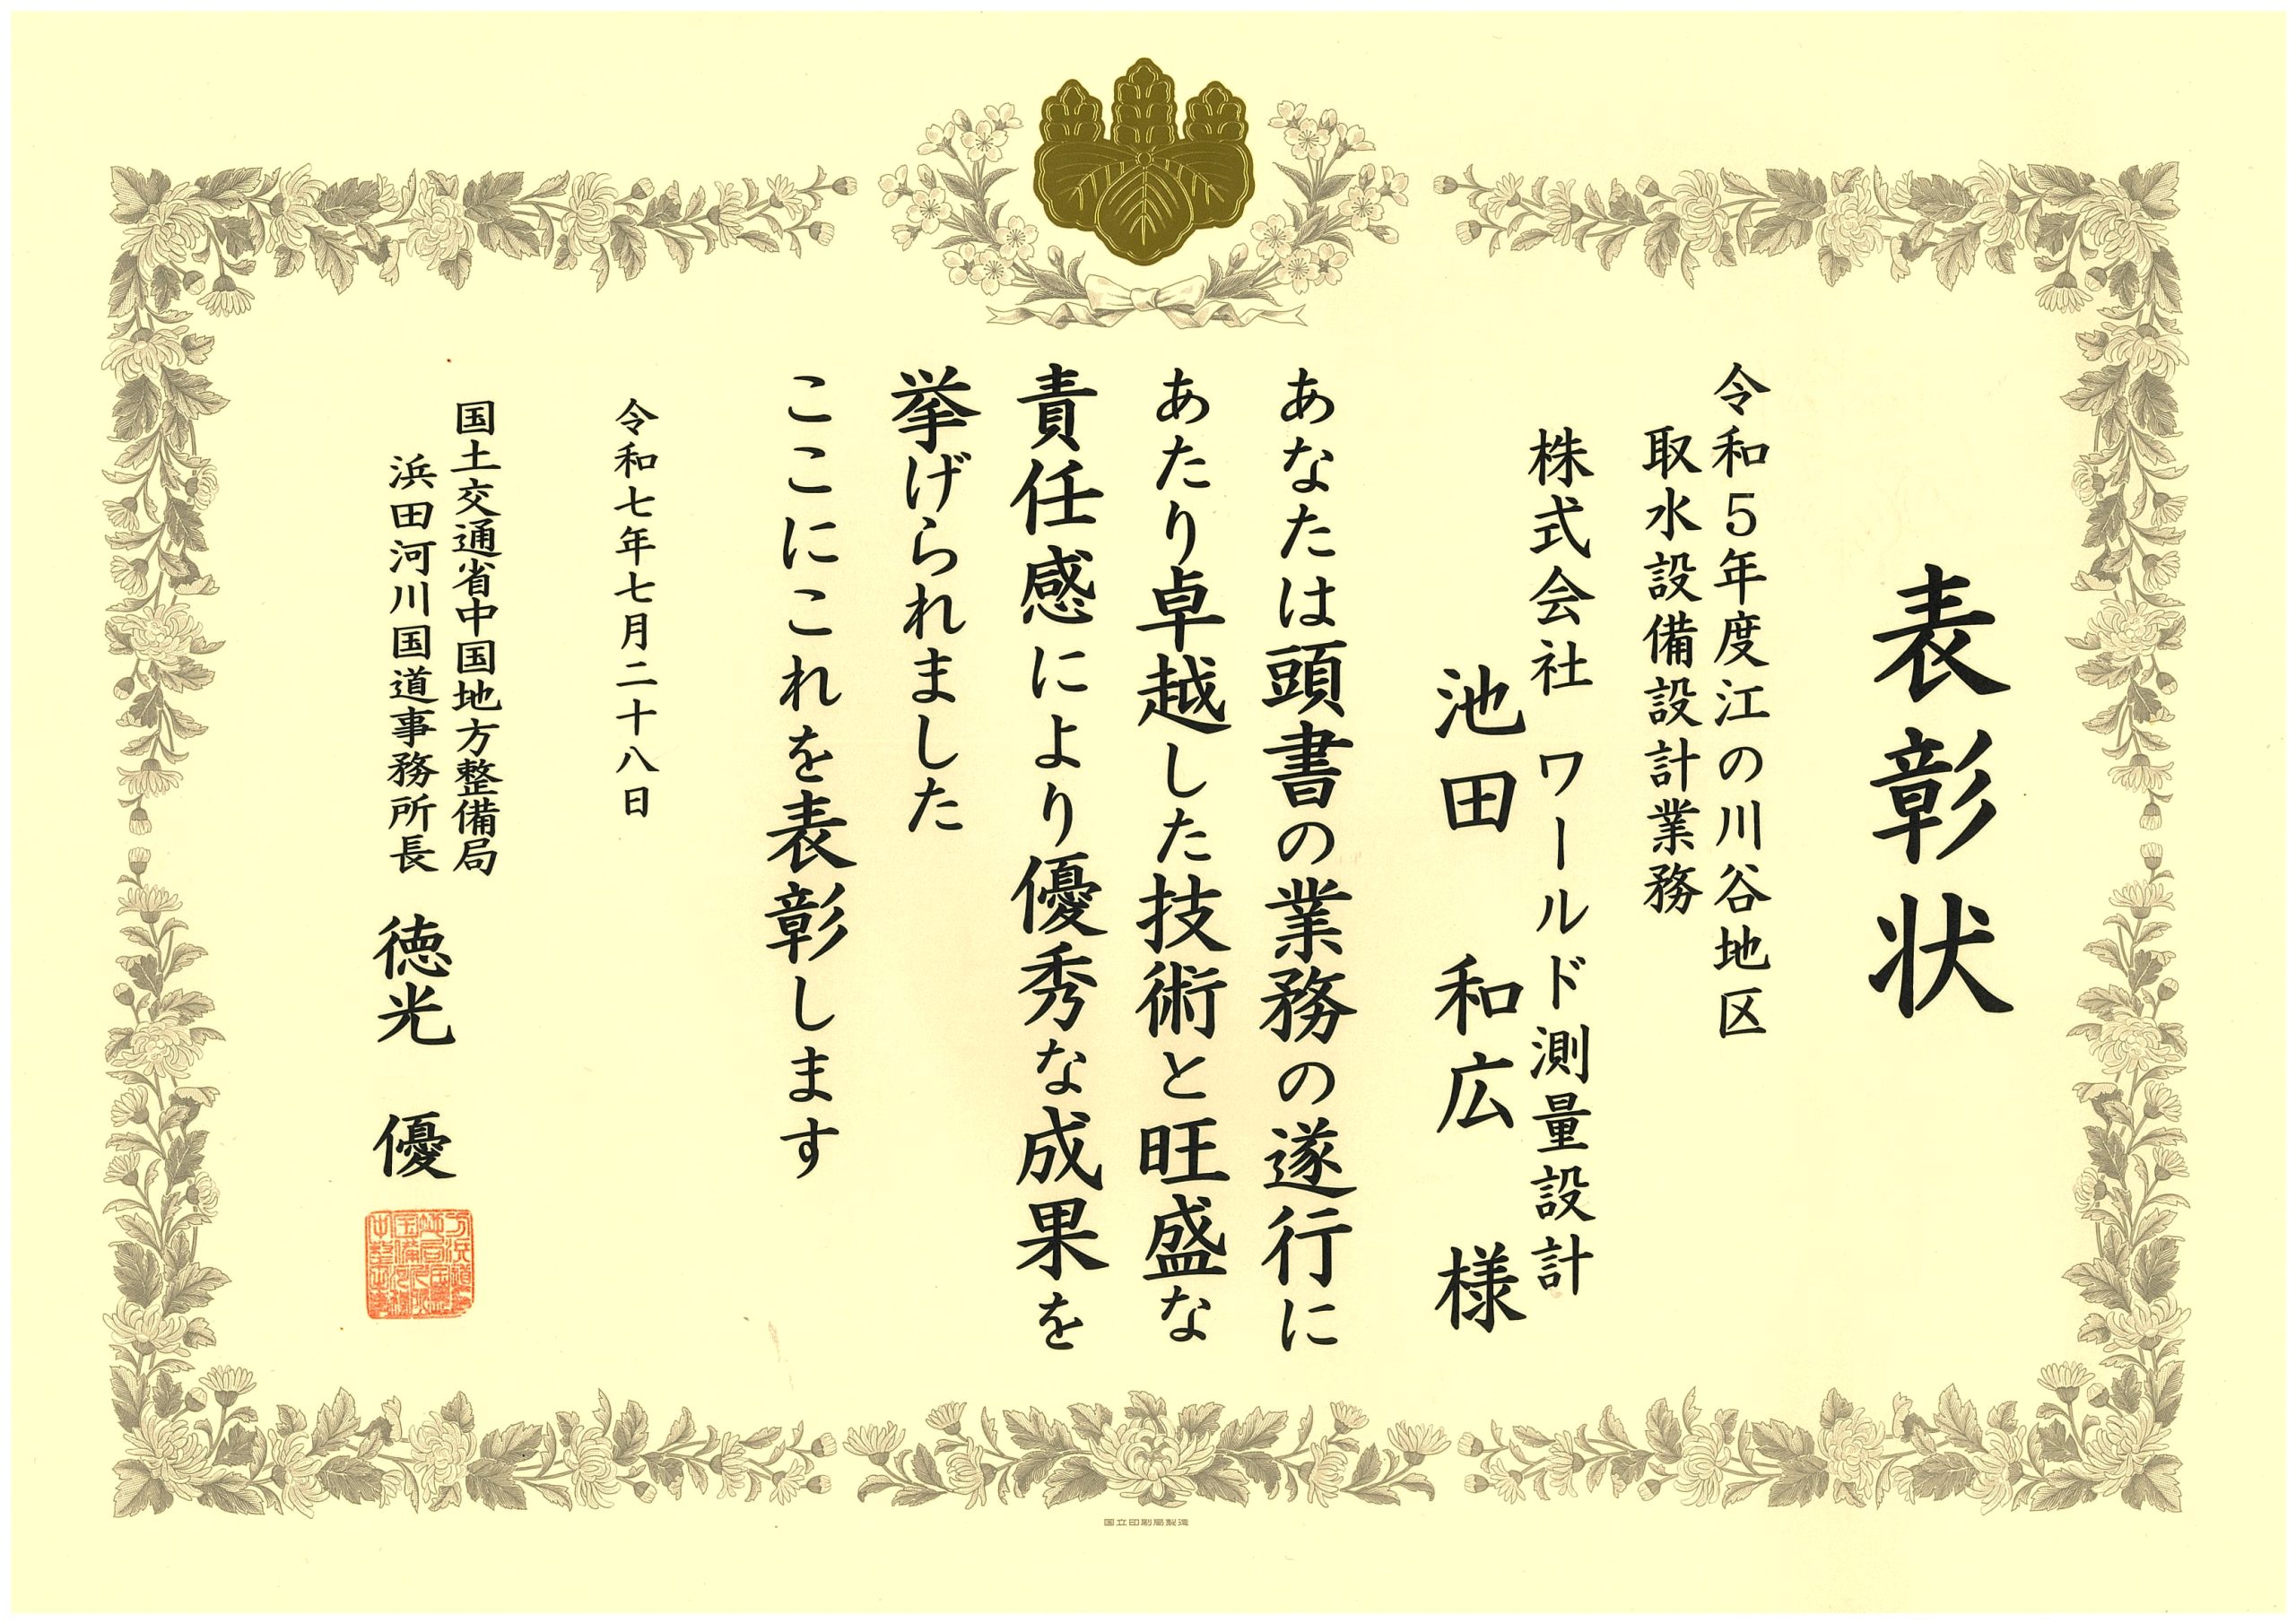 表彰状
令和５年度江の川谷地区
取水設備設計業務
株式会社 ワールド測量設計
池田 和広 様
あなたは頭書の業務の遂行に
あたり卓越した技術と旺盛な
責任感により優秀な成果を
挙げられました
ここにこれを表彰します
令和七年七月二十八日
国土交通省中国地方整備局
浜田河川国道事務所長 徳光 優
国立印刷局製造